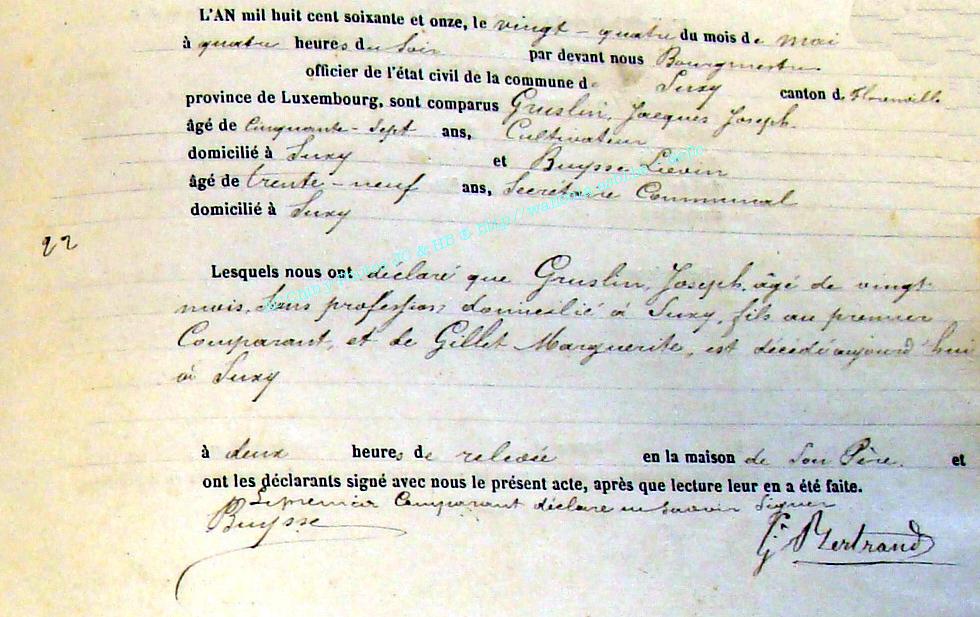 L'AN mil huit cent soixante et onze, le vingt-quatre du mois de mai
à quatre heures du soir par devant nous Bourgmestre
officier de l'état civil de la commune de Suxy canton d. Florenville
province de Luxembourg, sont comparus Gruslin, Jacques Joseph.
âgé de Cinquante-Sept ans, Cultivateur
domicilié à Suxy et Buysse Liévin
âgé de trente-neuf ans, Secrétaire Communal
domicilié à Suxy
22
Lesquels nous ont déclaré que Gruslin, Joseph, âgé de vingt
mois, Sans profession domicilié à Suxy, fils au premier
Comparant, et de Gillet Marguerite, est décédé aujourd'hui
à Suxy
à deux heures de relevée en la maison de Son Père, et
ont les déclarants signé avec nous le présent acte, après que lecture leur en a été faite.
Le premier Comparant déclare ne savoir Signer
Buysse
Bertrand